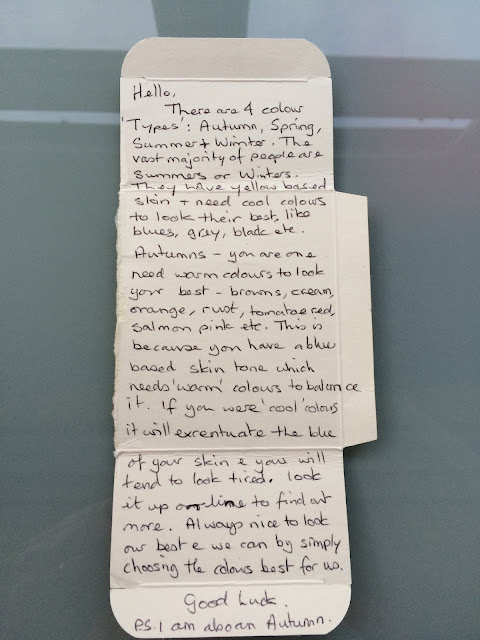 Hello,
There are 4 colour
'Types': Autumn, Spring,
Summer & Winter. The
vast majority of people are
Summers or Winters.
They have yellow based
skin + need cool colours
to look their best, like
blues, gray, black etc.
Autumns – you are one
need warm colours to look
your best – browns, cream,
orange, rust, tomatoe red,
salmon pink etc. This is
because you have a blue
based skin tone which
needs 'warm' colours to balance
it. If you were 'cool' colours
it will excentuate the blue
of your skin & you will
tend to look tired. look
it up on line to find out
more. Always nice to look
our best & we can by simply
choosing the colours best for us.
Good Luck.
P.S. I am also an Autumn.